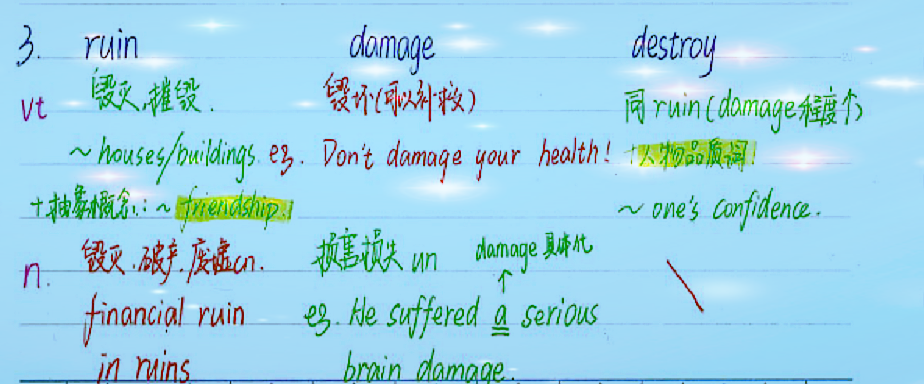 3. ruin damage destroy
vt 毁灭,摧毁. 毁坏(可以补救) 同 ruin (damage程度个)
~ houses/buildings. eg. Don't damage your health! +人物品质词!
+抽象概念: ~ friendship! ~ one's confidence.
n. 毁灭.破产.废墟cn. 损害损失 un damage 具体化
financial ruin eg. He suffered a serious
in ruins brain damage.